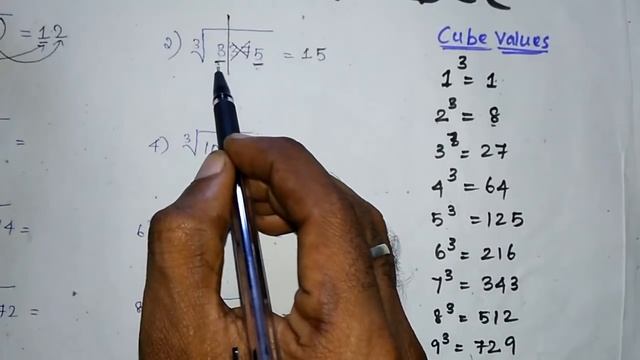 = 12
2) ∛3375 = 15
4) ∛10
=
4 =
72 =
6
8
Cube Values
1³ = 1
2³ = 8
3³ = 27
4³ = 64
5³ = 125
6³ = 216
7³ = 343
8³ = 512
9³ = 729